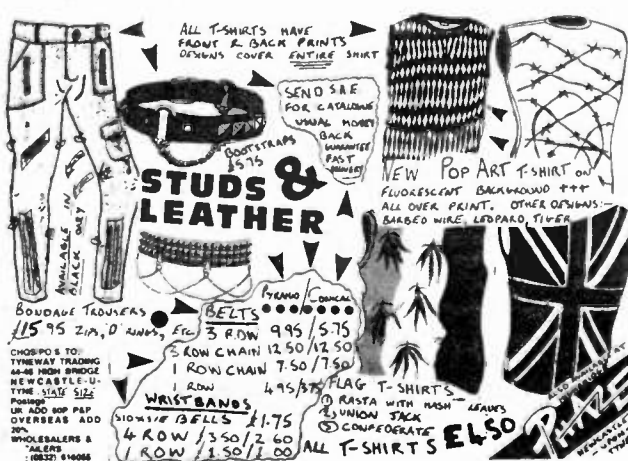 ALL T-SHIRTS HAVE
FRONT & BACK PRINTS
DESIGNS COVER ENTIRE SHIRT
SEND S.A.E
FOR CATALOGUE
USUAL MONEY
BACK
GUARANTEE
FAST
DELIVERY
BOOTSTRAPS
£5.75
STUDS &
LEATHER
AVAILABLE IN
BLACK ONLY
NEW POP ART T-SHIRT ON
FLUORESCENT BACKGROUND +++
ALL OVER PRINT. OTHER DESIGNS:-
BARBED WIRE, LEOPARD, TIGER
BONDAGE TROUSERS
£15.95 ZIPS, 'D' RINGS, ETC
CHQS/PO.S TO:
TYNEWAY TRADING
44-46 HIGH BRIDGE
NEWCASTLE-U-
TYNE. STATE SIZE
Postage
UK ADD 60P P&P
OVERSEAS ADD
20%
WHOLESALERS &
TAILERS
(0632) 616055
PYRAMID / CONICAL
BELTS
3 ROW 9.95 / 5.75
3 ROW CHAIN 12.50 / 12.50
1 ROW CHAIN 7.50 / 7.50
1 ROW 4.95 / 3.75
WRISTBANDS
SIOUXSIE BELLS £1.75
4 ROW / 3.50 / 2.60
1 ROW / 1.50 / 1.00
FLAG T-SHIRTS
① RASTA WITH HASH LEAVES
② UNION JACK
③ CONFEDERATE
ALL T-SHIRTS £4.50
ALSO AVAILABLE AT
PHAZE
NEWCASTLE
UPON
TYNE